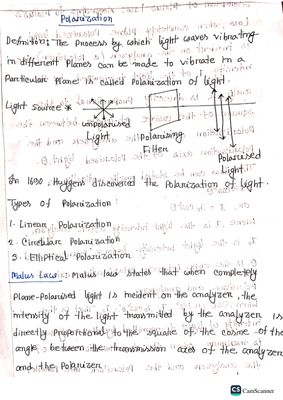 Polarization
Definition: The process by which light waves vibrating
in different planes can be made to vibrate in a
Particular Plane is called Polarization of light.
Light Source
unpolarised
Light
Polarising
Filter
Polarised
Light
In 1690, Huygens discovered the Polarization of light.
Types of Polarization:
1. Linear Polarization
2. Circular Polarization
3. Elliptical Polarization
Malus Law: Malus law states that when completely
Plane-Polarised light is incident on the analyzer, the
intensity of the light transmitted by the analyzer is
directly proportional to the square of the cosine of the
angle between the transmission axes of the analyzer
and the Polarizer.
CS CamScanner